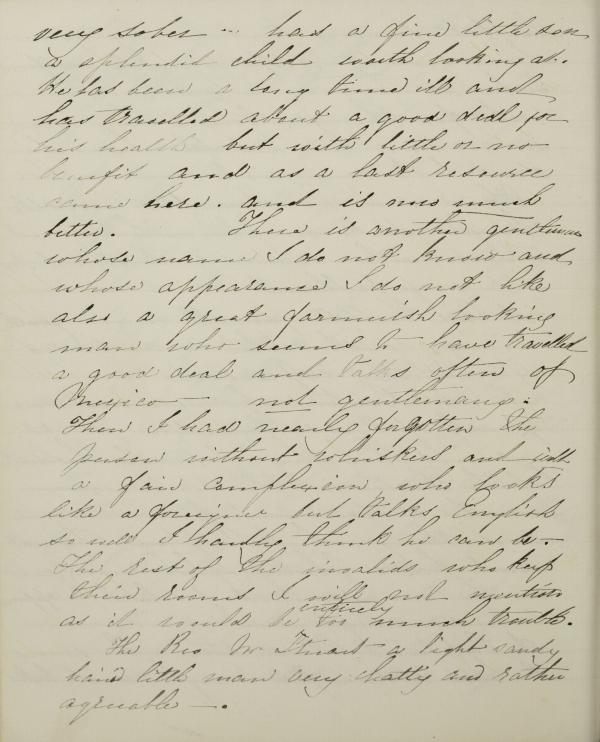 very sober — has a fine little son
a splendid child worth looking at.
He has been a long time ill and
has travelled about a good deal for
his health but with little or no
benefit and as a last resource
came here. and is now much
better. There is another gentleman
whose name I do not know and
whose appearance I do not like
also a great farmerish looking
man who seems to have travelled
a good deal and talks often of
Mexico — not gentlemany.
Then I had nearly forgotten the
person without whiskers and with
a fair complexion who looks
like a foreigner but talks English
so well I hardly think he can be. —
The rest of the invalids who keep
their rooms I will not mention
as it would be entirely too much trouble.
The Rev Mr Stuart a light sandy
haird little man very chatty and rather
agreeable — .